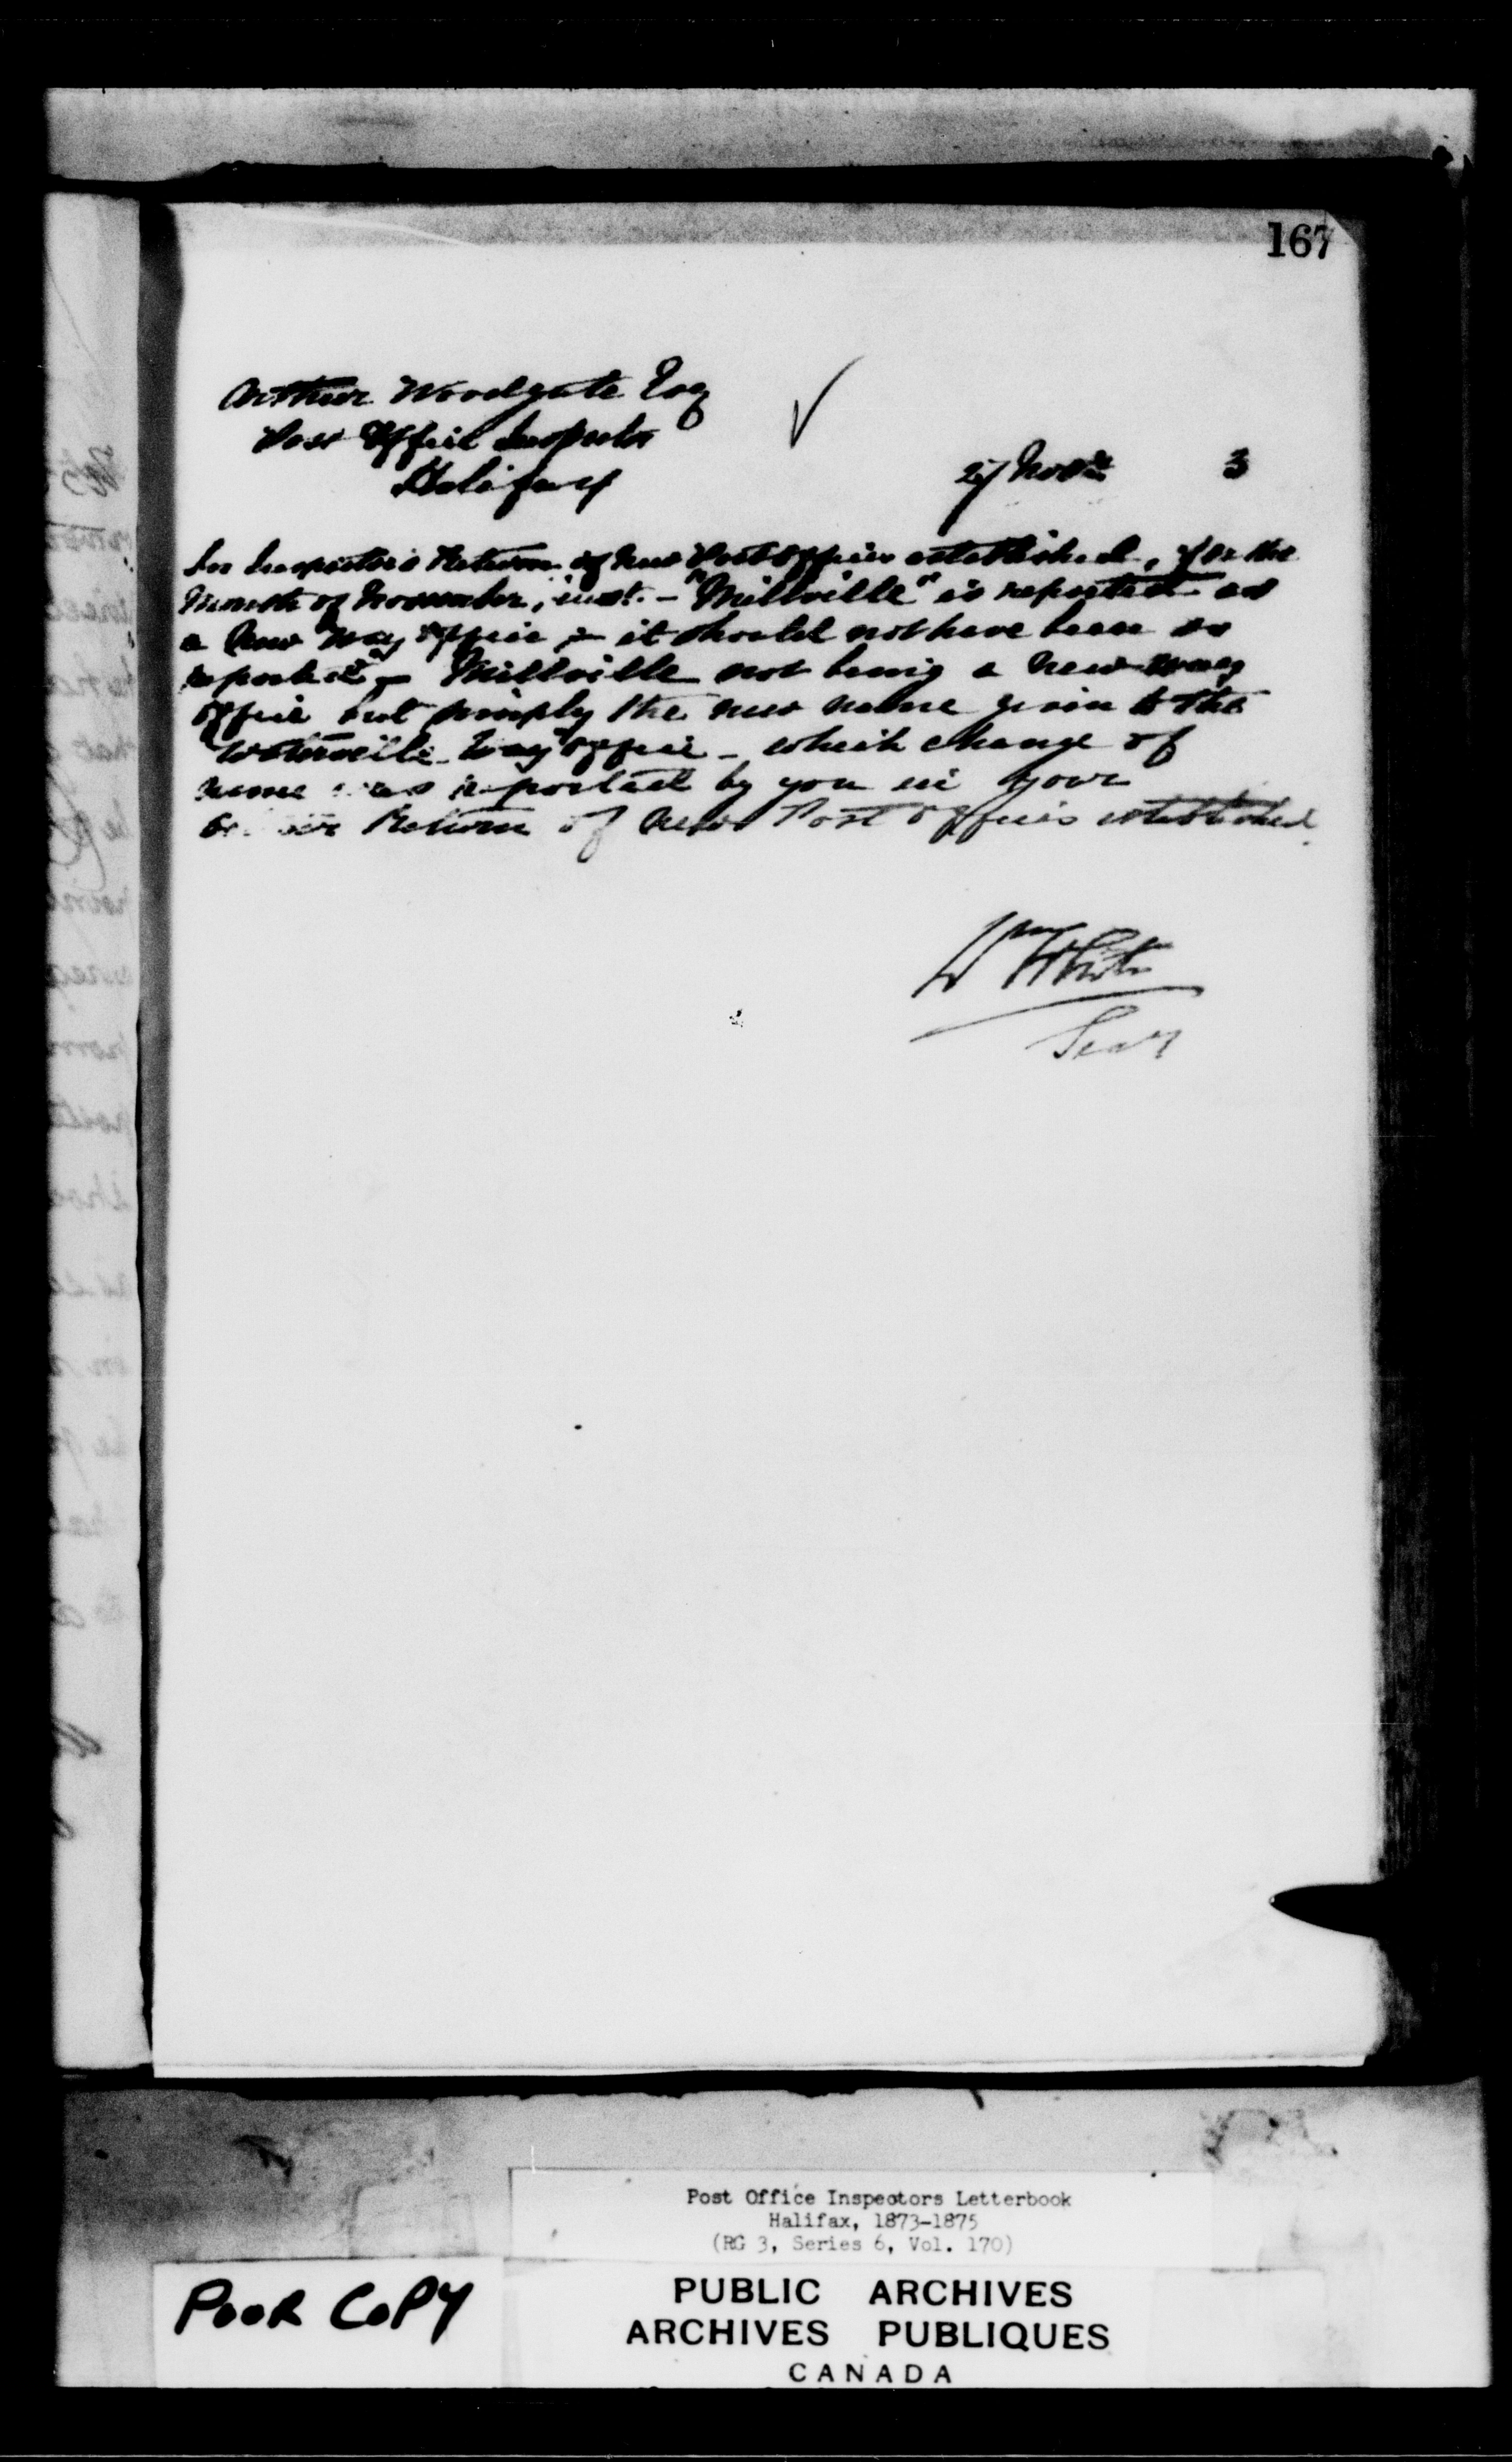 167
Arthur Woodgate Esq
Post Office Inspector
Halifax
27 Novr 3
In Inspector's Return of New Post Offices established, for the
Month of November, inst. - "Millville" is reported as
a New Way Office - it should not have been so
reported - Millville not being a new way
office but simply the new name given to the
"Waterville" Way Office - which change of
name was reported by you in your
Return of New Post Offices established.
Wm White
Secy
Post Office Inspectors Letterbook
Halifax, 1873-1875
(RG 3, Series 6, Vol. 170)
POOR COPY
PUBLIC ARCHIVES
ARCHIVES PUBLIQUES
CANADA